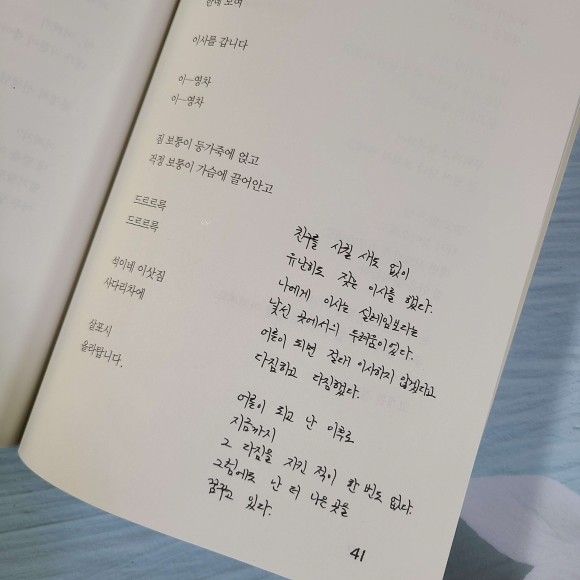 한데 모여
이사를 갑니다
이—영차
이—영차
짐 보퉁이 등가죽에 업고
걱정 보퉁이 가슴에 끌어안고
드르르륵
드르르륵
석이네 이삿짐
사다리차에
살포시
올라탑니다.
친구를 사귈 새도 없이
유난히도 잦은 이사를 했다.
나에게 이사는 설레임보다는
낯선 곳에서의 두려움이었다.
어른이 되면 절대 이사하지 않겠다고
다짐하고 다짐했다.
어른이 되고 난 이후로
지금까지
그 다짐을 지킨 적이 한 번도 없다.
그럼에도 난 더 나은 곳을
꿈꾸고 있다.
41